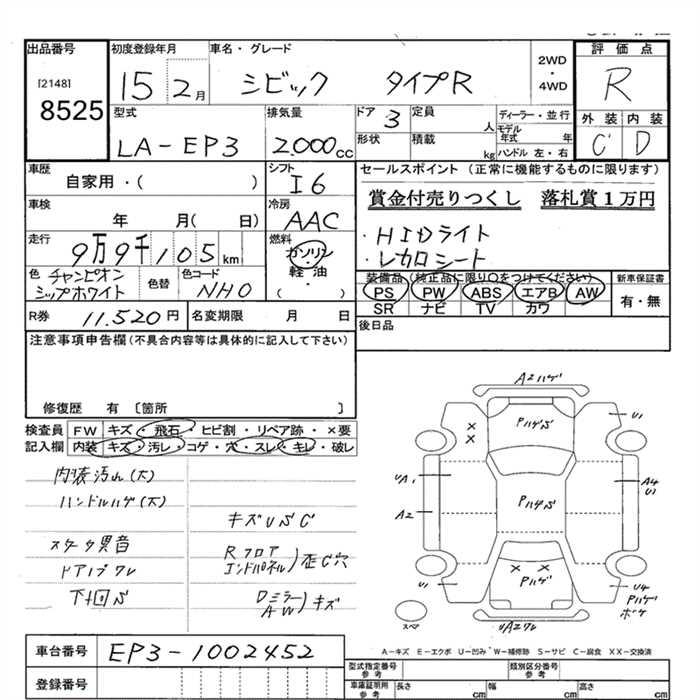 出品番号
[2148]
8525
初度登録年月
15 2月
車名・グレード
シビック タイプR
2WD
・
4WD
評価点
R
外装 内装
C D
型式
LA-EP3
排気量
2.000cc
ドア
3
定員
人
形状
積載
kg
ディーラー・並行
モデル年式 年
ハンドル 左・右
車歴
自家用・( )
シフト
I6
車検
年 月( 日)
冷房
AAC
走行
9万9千105km
燃料
ガソリン
軽油
( )
色
チャンピオンシップホワイト
色替
色コード
NH0
R券
11.520円
名変期限 月 日
セールスポイント (正常に機能するものに限ります)
賞金付売りつくし 落札賞1万円
・HIDライト
・レカロシート
装備品(純正品に限り○をつけてください)
PS PW ABS エアB AW
SR ナビ TV カワ
新車保証書
有・無
後日品
注意事項申告欄(不具合内容等は具体的に記入して下さい)
修復歴 有 〔箇所 〕
検査員記入欄
FW キズ・飛石・ヒビ割・リペア跡・×要
内装 キズ・汚レ・コゲ・穴・スレ・キレ・破レ
内装汚れ(大)
ハンドルハゲ(大)
スタータ異音
ドアノブワレ
下回S
キズUSC
Rフロア
エンドパネル)歪C穴
Dミラー
AW)キズ
A2ハゲ
PハゲS
U1
×
×
UA1
A2
PハゲS
A4
U1
× ×
Pハゲ
U1
U4
Pハゲ
ボケ
UA2ワレ
スペア
A-キズ E-エクボ U-凹み W-補修跡 S-サビ C-腐食 XX-交換済
車台番号
EP3-1002452
登録番号
型式指定番号
参考
類別区分番号
参考
車庫証明用
参考
長さ cm
幅 cm
高さ cm